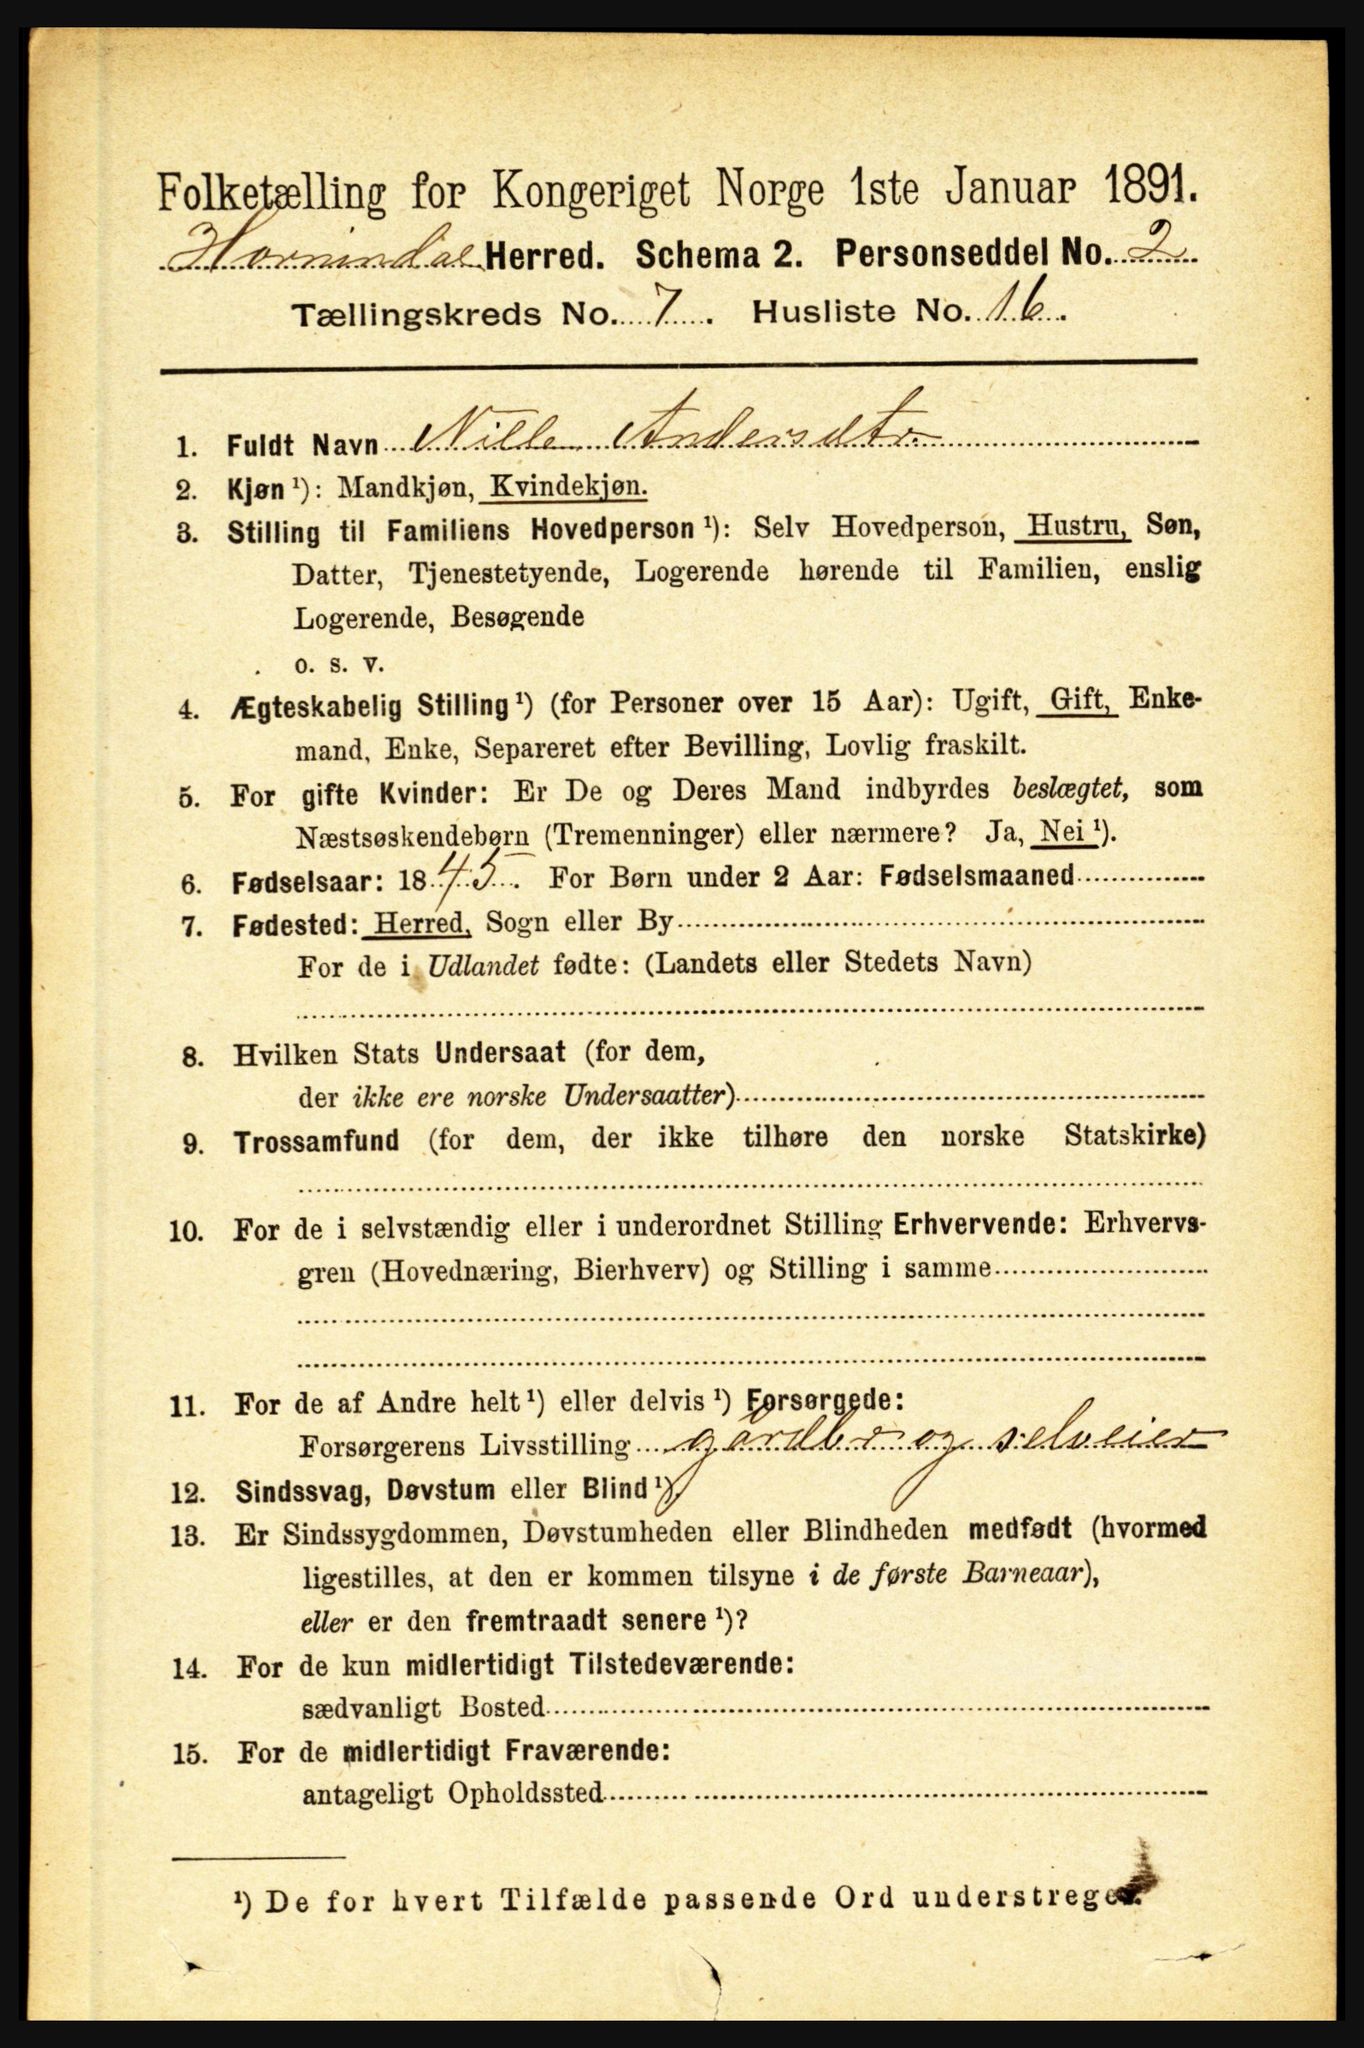 Folketælling for Kongeriget Norge 1ste Januar 1891.
Hornindal Herred. Schema 2. Personseddel No. 2
Tællingskreds No. 7. Husliste No. 16.
1. Fuldt Navn Nille Andersdtr.
2. Kjøn ¹): Mandkjøn, Kvindekjøn.
3. Stilling til Familiens Hovedperson ¹): Selv Hovedperson, Hustru, Søn,
Datter, Tjenestetyende, Logerende hørende til Familien, enslig
Logerende, Besøgende
o. s. v.
4. Ægteskabelig Stilling ¹) (for Personer over 15 Aar): Ugift, Gift, Enke-
mand, Enke, Separeret efter Bevilling, Lovlig fraskilt.
5. For gifte Kvinder: Er De og Deres Mand indbyrdes beslægtet, som
Næstsøskendebørn (Tremenninger) eller nærmere? Ja, Nei ¹).
6. Fødselsaar: 1845. For Børn under 2 Aar: Fødselsmaaned
7. Fødested: Herred, Sogn eller By
For de i Udlandet fødte: (Landets eller Stedets Navn)
8. Hvilken Stats Undersaat (for dem,
der ikke ere norske Undersaatter)
9. Trossamfund (for dem, der ikke tilhøre den norske Statskirke)
10. For de i selvstændig eller i underordnet Stilling Erhvervende: Erhvervs-
gren (Hovednæring, Bierhverv) og Stilling i samme
11. For de af Andre helt ¹) eller delvis ¹) Forsørgede:
Forsørgerens Livsstilling gårdbr og selveier
12. Sindssvag, Døvstum eller Blind ¹).
13. Er Sindssygdommen, Døvstumheden eller Blindheden medfødt (hvormed
ligestilles, at den er kommen tilsyne i de første Barneaar),
eller er den fremtraadt senere ¹)?
14. For de kun midlertidigt Tilstedeværende:
sædvanligt Bosted
15. For de midlertidigt Fraværende:
antageligt Opholdssted
¹) De for hvert Tilfælde passende Ord understreges.